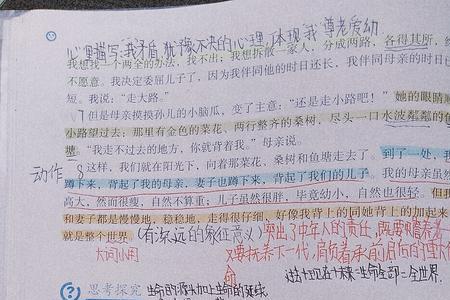 心里描写:我矛盾,犹豫不决的心理,体现"我"尊老爱幼
我想找一个两全的办法,我不出;我想拆散一家人,分成两路,各得其所,终
不愿意。我决定委屈儿子了,因为我伴同他的时日还长,我伴同母亲的时日已
短。我说:“走大路。”
7 但是母亲摸摸孙儿的小脑瓜,变了主意:“还是走小路吧!”她的眼睛
小路望过去:那里有金色的菜花、两行整齐的桑树,尽头一口水波粼粼的
塘。“我走不过去的地方,你就背着我。”母亲说。
动作 8 这样,我们就在阳光下,向着那菜花、桑树和鱼塘走去了。到了一处,我
蹲下来,背起了我的母亲,妻子也蹲下来,背起了我们的儿子。我的母亲虽然
高大,然而很瘦,自然不算重;儿子虽然很胖,毕竟幼小,自然也很轻。但我
和妻子都是慢慢地,稳稳地,走得很仔细,好像我背上的同她背上的加起来,
就是整个世界。(有深远的象征意义)突出了中年人的责任,既要赡养老
大词小用 又要抚养下一代,肩负着承前启后的重大
思考探究 生命的源头加上生命的延续